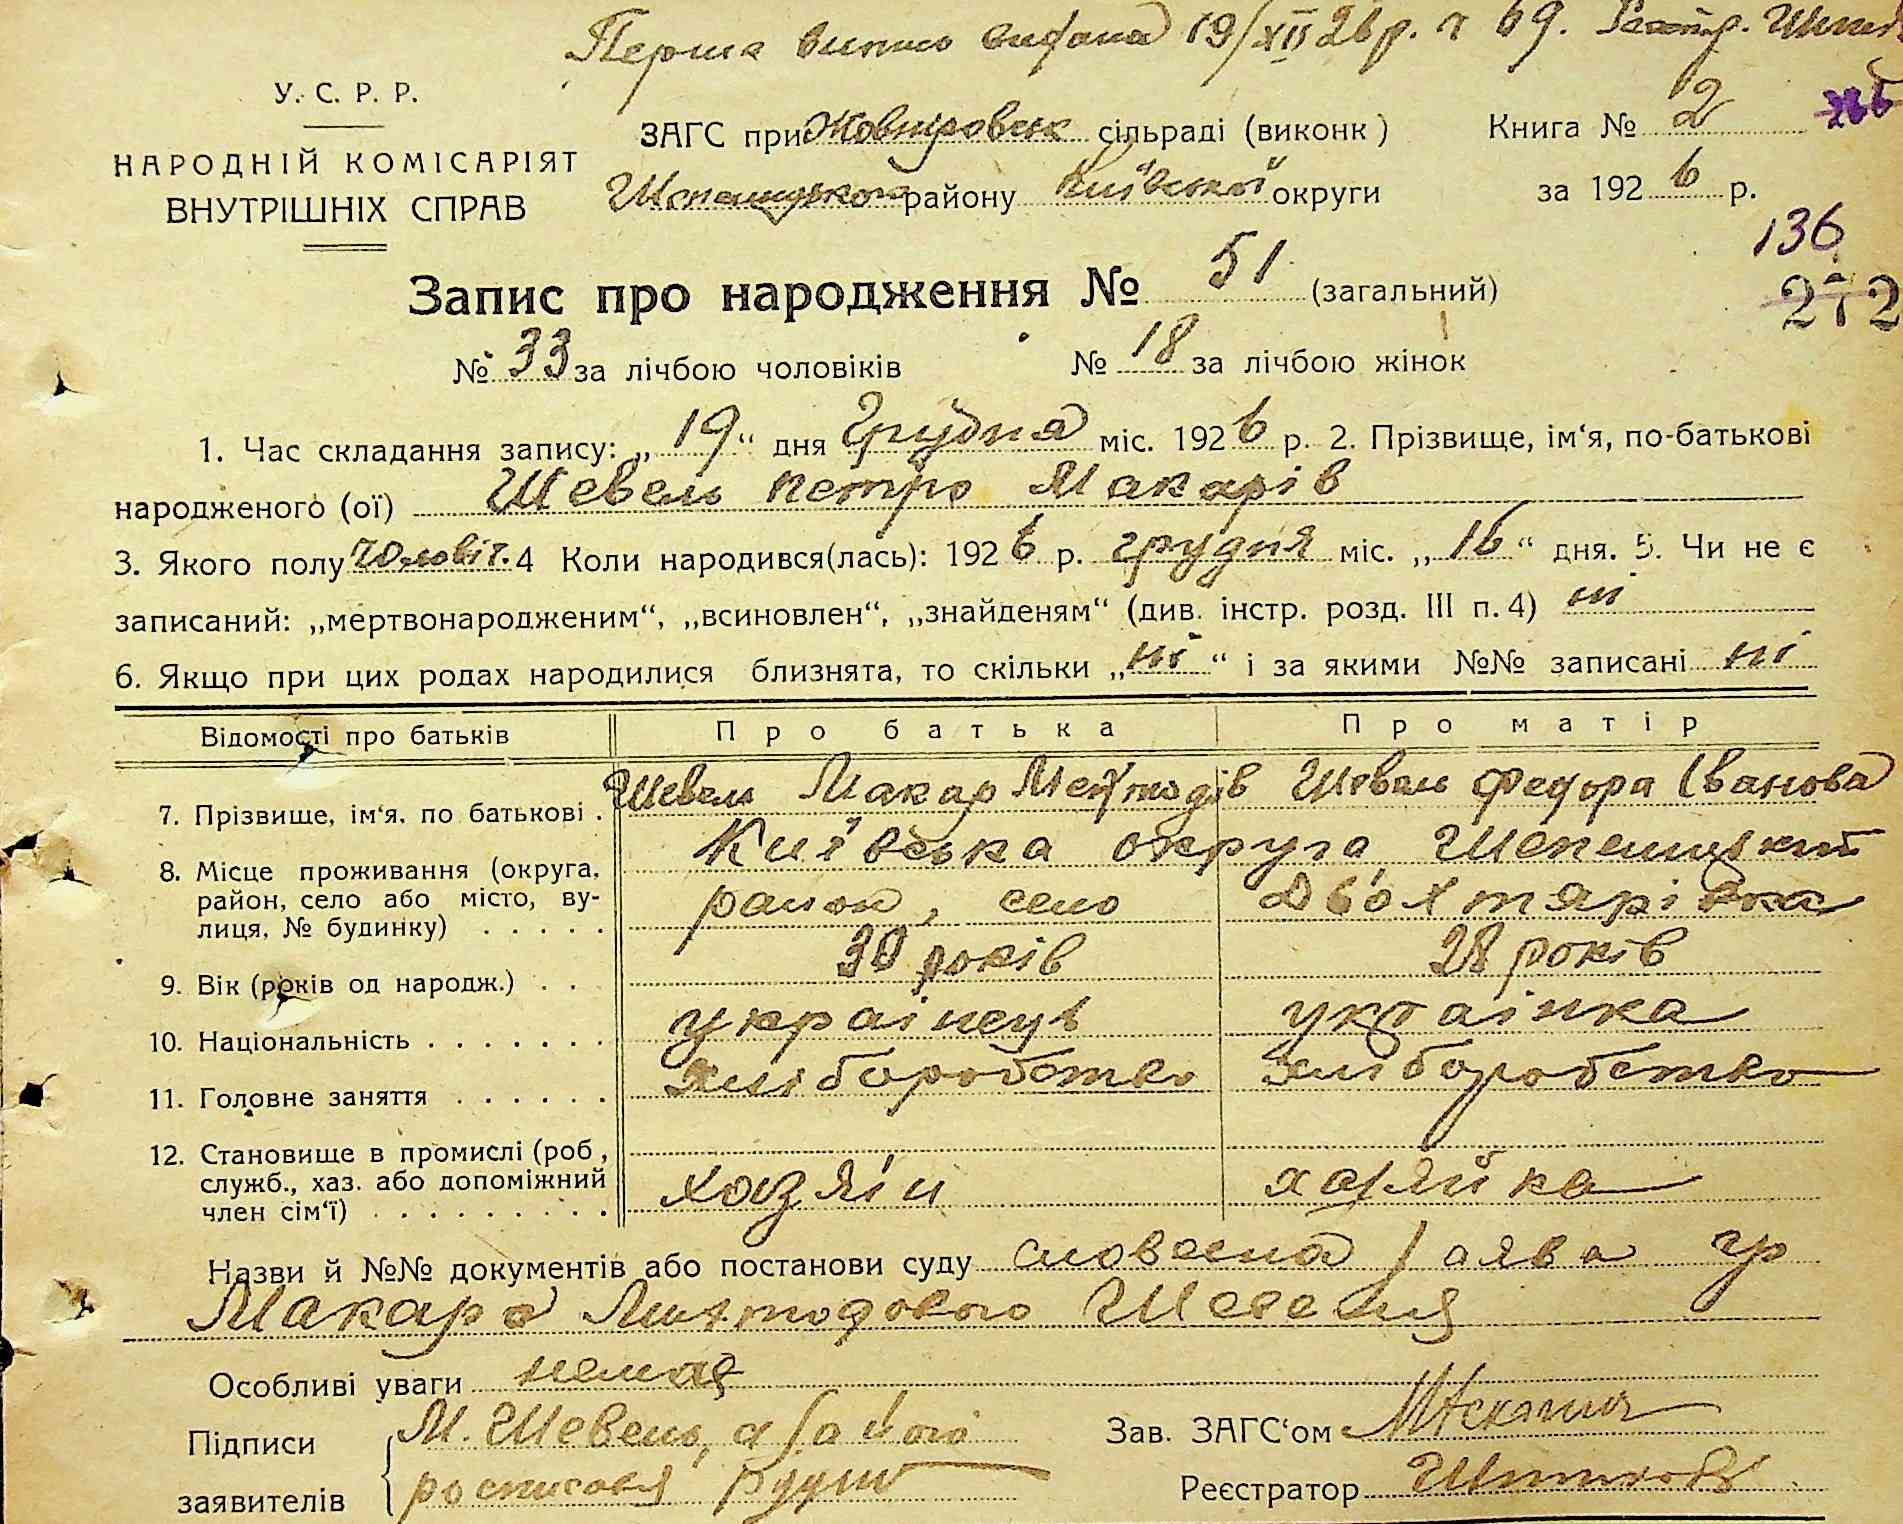 Перша випись видана 19/XII 26 р. № 69.
У. С. Р. Р.
НАРОДНІЙ КОМІСАРІЯТ
ВНУТРІШНІХ СПРАВ
ЗАГС при сільраді (виконк )
району Київської округи
Книга № 2
за 1926 р.
136
272
Запис про народження № 51 (загальний)
№ 33 за лічбою чоловіків № 18 за лічбою жінок
1. Час складання запису: „ 19 “ дня Грудня міс. 1926 р. 2. Прізвище, ім‘я, по-батькові
народженого (ої) Шевель Петро Макарів
3. Якого полу Чоловіч. 4 Коли народився(лась): 1926 р. грудня міс. „ 16 “ дня. 5. Чи не є
записаний: „мертвонародженим“, „всиновлен“, „знайденям“ (див. інстр. розд. III п. 4) ні
6. Якщо при цих родах народилися близнята, то скільки „ ні “ і за якими №№ записані ні
Відомості про батьків Про батька Про матір
7. Прізвище, ім‘я, по батькові . Шевель Макар Шевель Федора Іванова
8. Місце проживання (округа, Київська округа
район, село або місто, ву- район, село
лиця, № будинку) . . . . .
9. Вік (років од народж.) . . 30 років 28 років
10. Національність . . . . . . . українець українка
11. Головне заняття . . . . . . хліборобство хліборобство
12. Становище в промислі (роб ,
служб., хаз. або допоміжний хазяін хазяйка
член сім‘ї) . . . . . . . . .
Назви й №№ документів або постанови суду словесна заява гр
Макара Шевеля
Особливі уваги немає
Підписи М. Шевель, а за його
заявителів
Зав. ЗАГС‘ом
Реєстратор